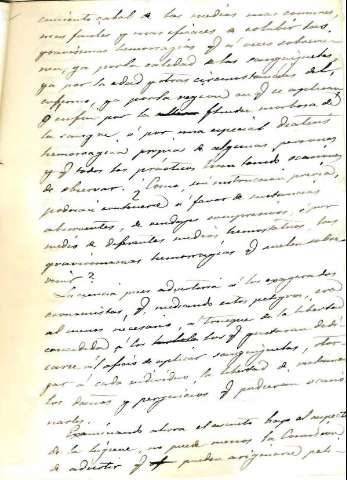 cimiento cabal de los medios mas comunes,
mas faciles y mas eficaces de cohibir las
gravisimas hemorragias q. á veces sobrevie-
nen, ya por la calidad de las sanguijuelas
ya por la edad y otras circunstancias del
enfermo, ya por la region en q. se aplican
q. en fin por la fluidez morbosa de
la sangre, ó por una especial diatesis
hemorragica propia de algunas personas
y q. todos los prácticos han tenido ocasiones
de observar. ? Como, sin instruccion previa,
podrán contenerse á favor de sustancias
absorventes, de vendajes compresivos, ó por
medio de diferentes medios hemostaticos, las
gravisimas hemorragias q. suelen sobre
venir?
La ciencia pues advertiria á los exagerados
economistas, q. mediando estos peligros, era
al menos necesario, á trueque de la libertad
concedida á los q. quisieran dedi-
carse al oficio de aplicar sanguijuelas, otor-
gar á cada individuo, la libertad de reclamar
los daños y perjuicios q. pudieran ocasio
narles.
Examinando ahora el asunto bajo el aspecto
de la higiene, no puede menos la Comision
de advertir q. pueden originarse peli-